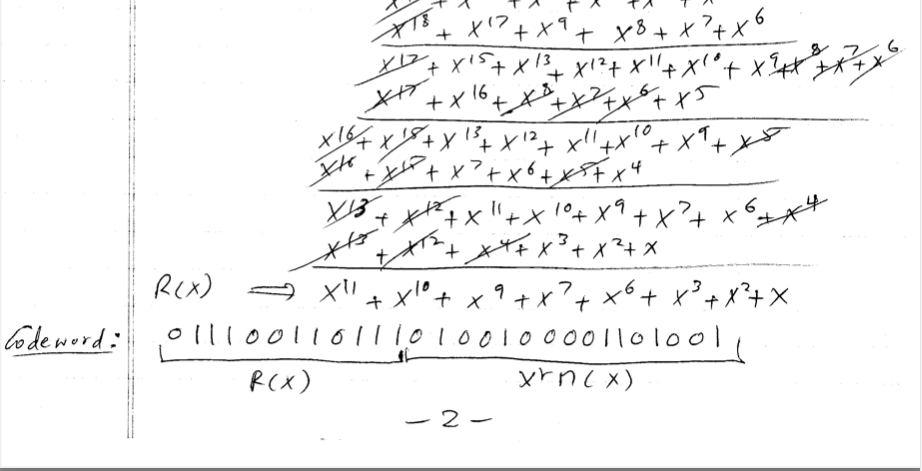 x¹⁸ + x¹⁷ + x⁹ + x⁸ + x⁷ + x⁶
x¹⁷ + x¹⁵ + x¹³ + x¹² + x¹¹ + x¹⁰ + x⁹ + x⁸ + x⁷ + x⁶
x¹⁷ + x¹⁶ + x⁸ + x⁷ + x⁶ + x⁵
x¹⁶ + x¹⁵ + x¹³ + x¹² + x¹¹ + x¹⁰ + x⁹ + x⁵
x¹⁶ + x¹⁵ + x⁷ + x⁶ + x⁵ + x⁴
x¹³ + x¹² + x¹¹ + x¹⁰ + x⁹ + x⁷ + x⁶ + x⁴
x¹³ + x¹² + x⁴ + x³ + x² + x
R(x) ⇒ x¹¹ + x¹⁰ + x⁹ + x⁷ + x⁶ + x³ + x² + x
Codeword: 0111001101110100100001101001
R(x) xʳm(x)
-2-